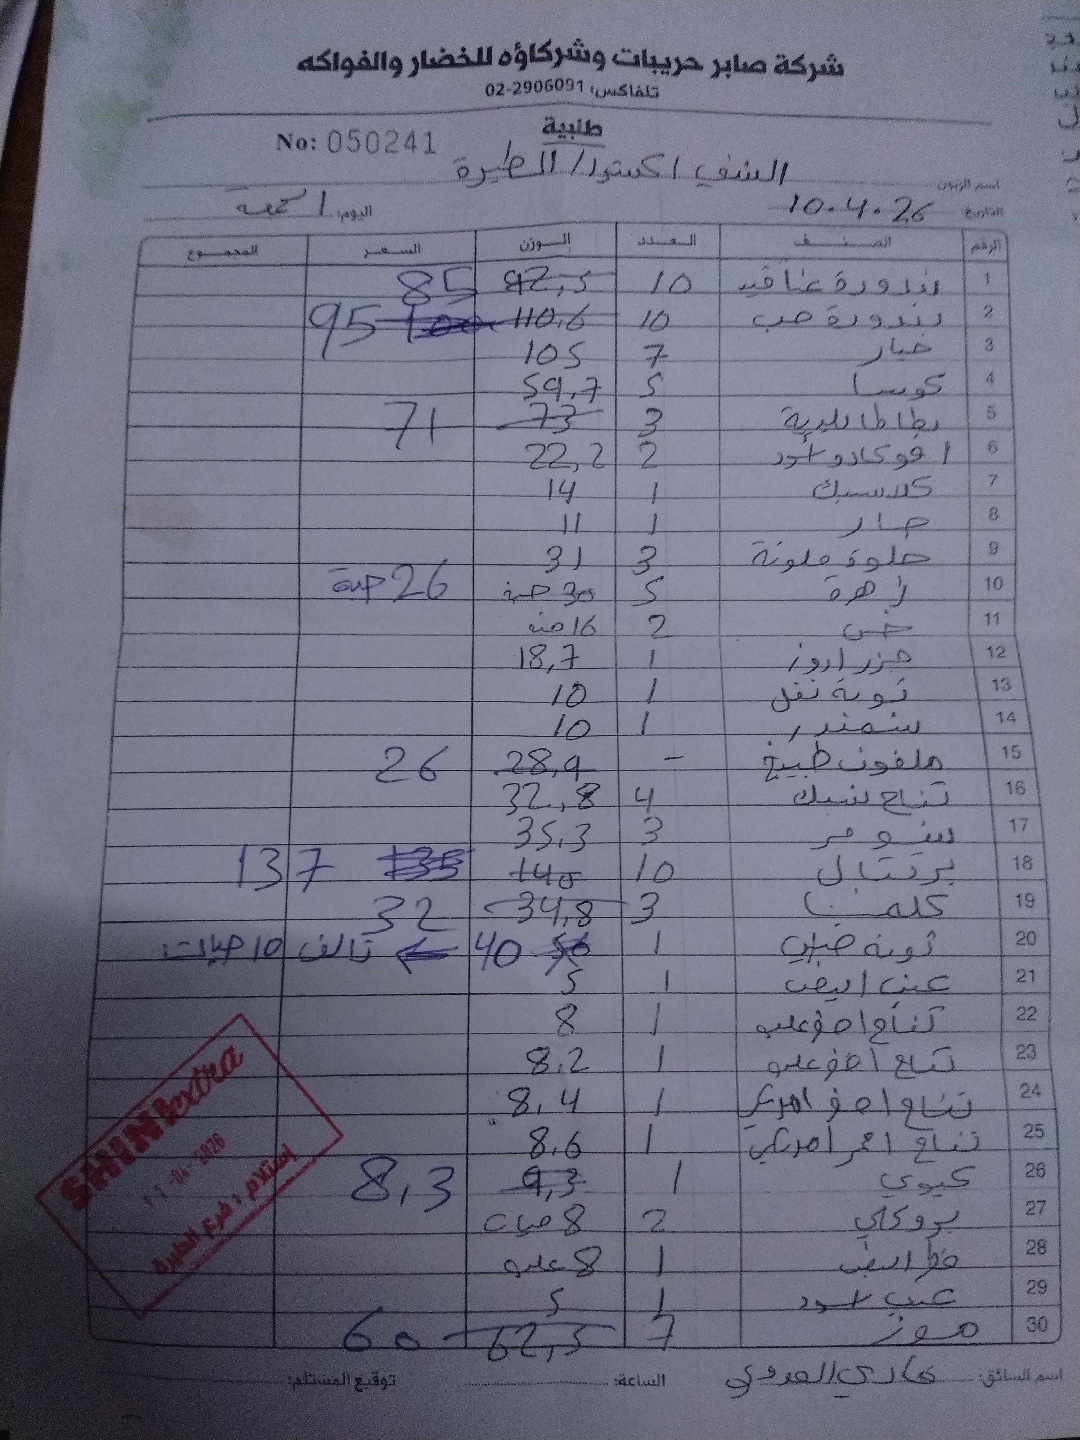 شركة صابر حريبات وشركاؤه للخضار والفواكه
تلفاكس: 02-2906091
طلبية
No: 050241
اسم الزبون الشني اكسترا / الطيرة
التاريخ 10.4.26 اليوم: الجمعة
الرقم الصنف العدد الوزن السعر المجموع
1 بندورة عناقيد 10 92,5 85
2 بندورة حب 10 110,6 100 95
3 خيار 7 105
4 كوسا 5 59,7
5 بطاطا بلدية 3 73 71
6 افوكادو اسود 2 22,2
7 كلاسيك 1 14
8 حار 1 11
9 حلوة ملونة 3 31
10 زهرة 5 30 حبة 26 حبة
11 خس 2 16 حبة
12 جزر اروز 1 18,7
13 ثومة نفل 1 10
14 شمندر 1 10
15 ملفوف طبيخ - 28,9 26
16 تفاح شبك 4 32,8
17 بومر 3 35,3
18 برتقال 10 140 135 137
19 كلمنتينا 3 34,8 32
20 ثومة 1 50 40 ← تالف 10 حبات
21 عنب ابيض 1 5
22 تفاح اصفر علب 1 8
23 تفاح اصفر علب 1 8.2
24 تفاح اصفر امريكي 1 8,4
25 تفاح احمر امريكي 1 8,6
26 كيوي 1 9,3 8,3
27 بروكلي 2 8 حبات
28 فطر ابيض 1 8 علب
29 عنب اسود 1 5
30 موز 7 62,5 60
SHINI extra
11-04-2026
إستلام / فرع الطيرة
اسم السائق: الساعة: توقيع المستلم: